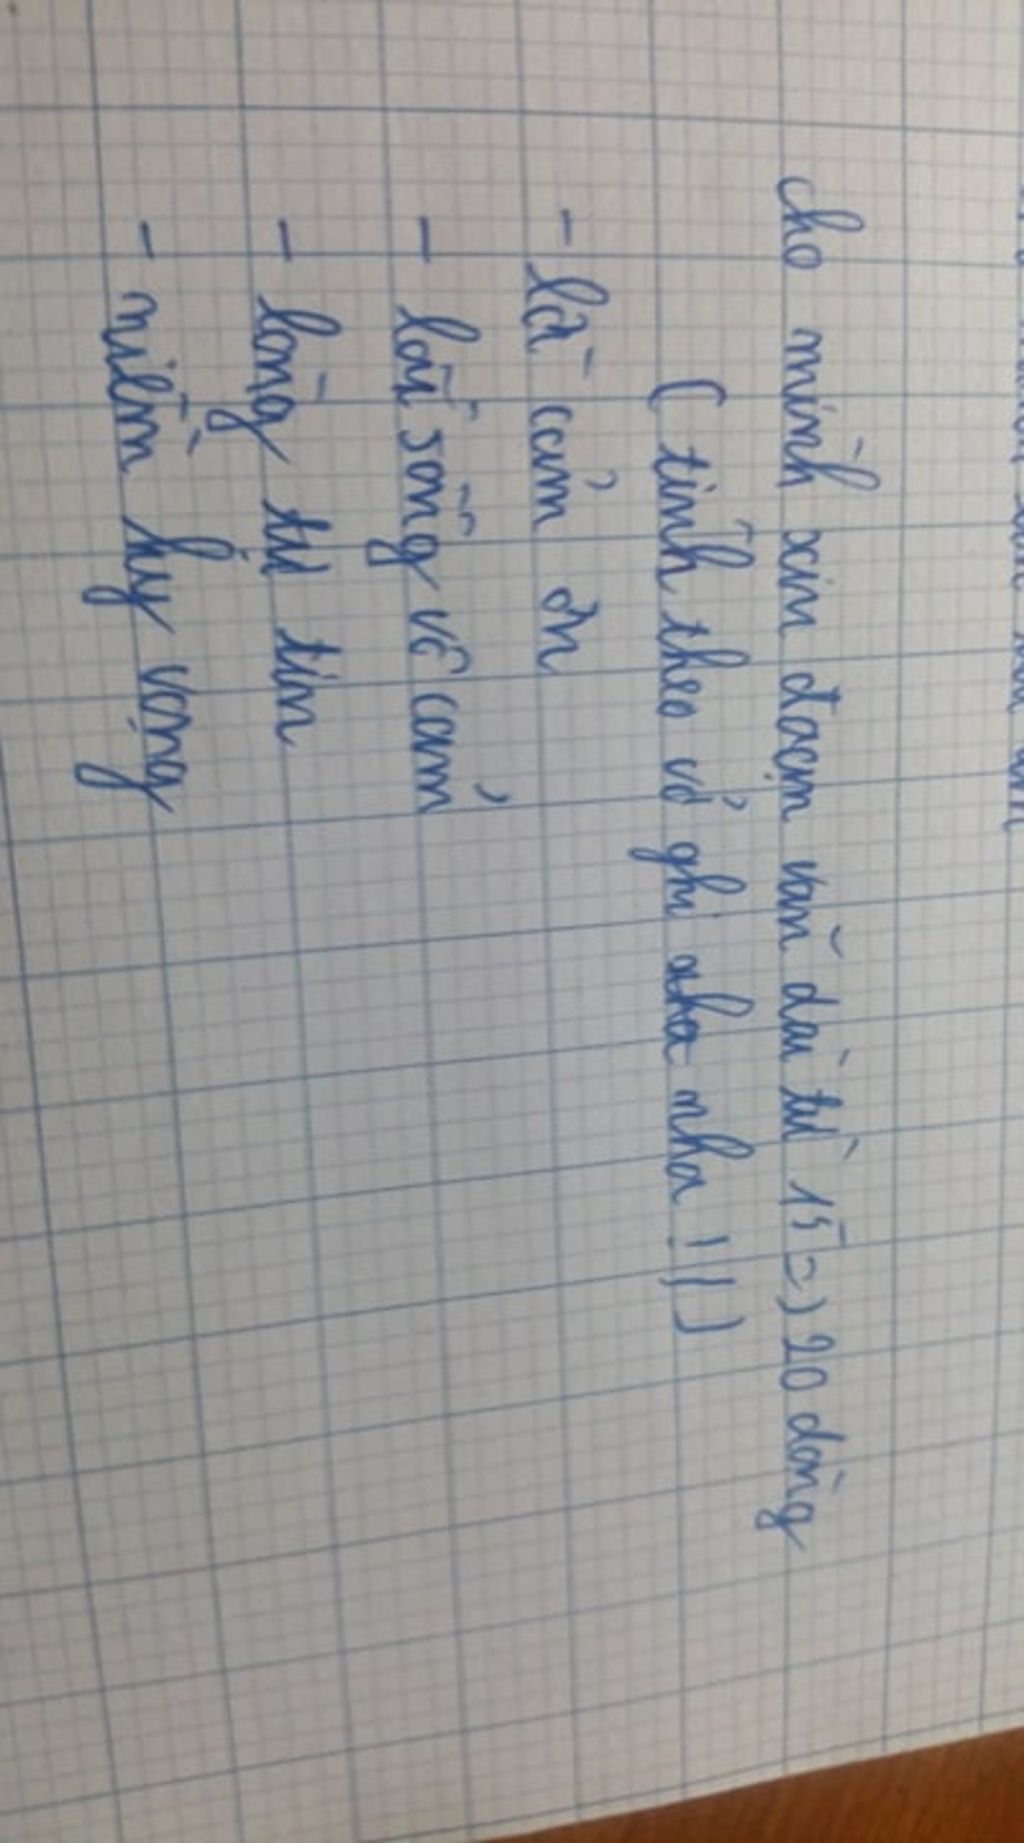 cho mình xin đoạn văn dài từ 15 => 20 dòng
( tính theo vở ghi nha nha !!! )
- lời cảm ơn
- lối sống vô cảm
- lòng tự tin
- niềm hy vọng